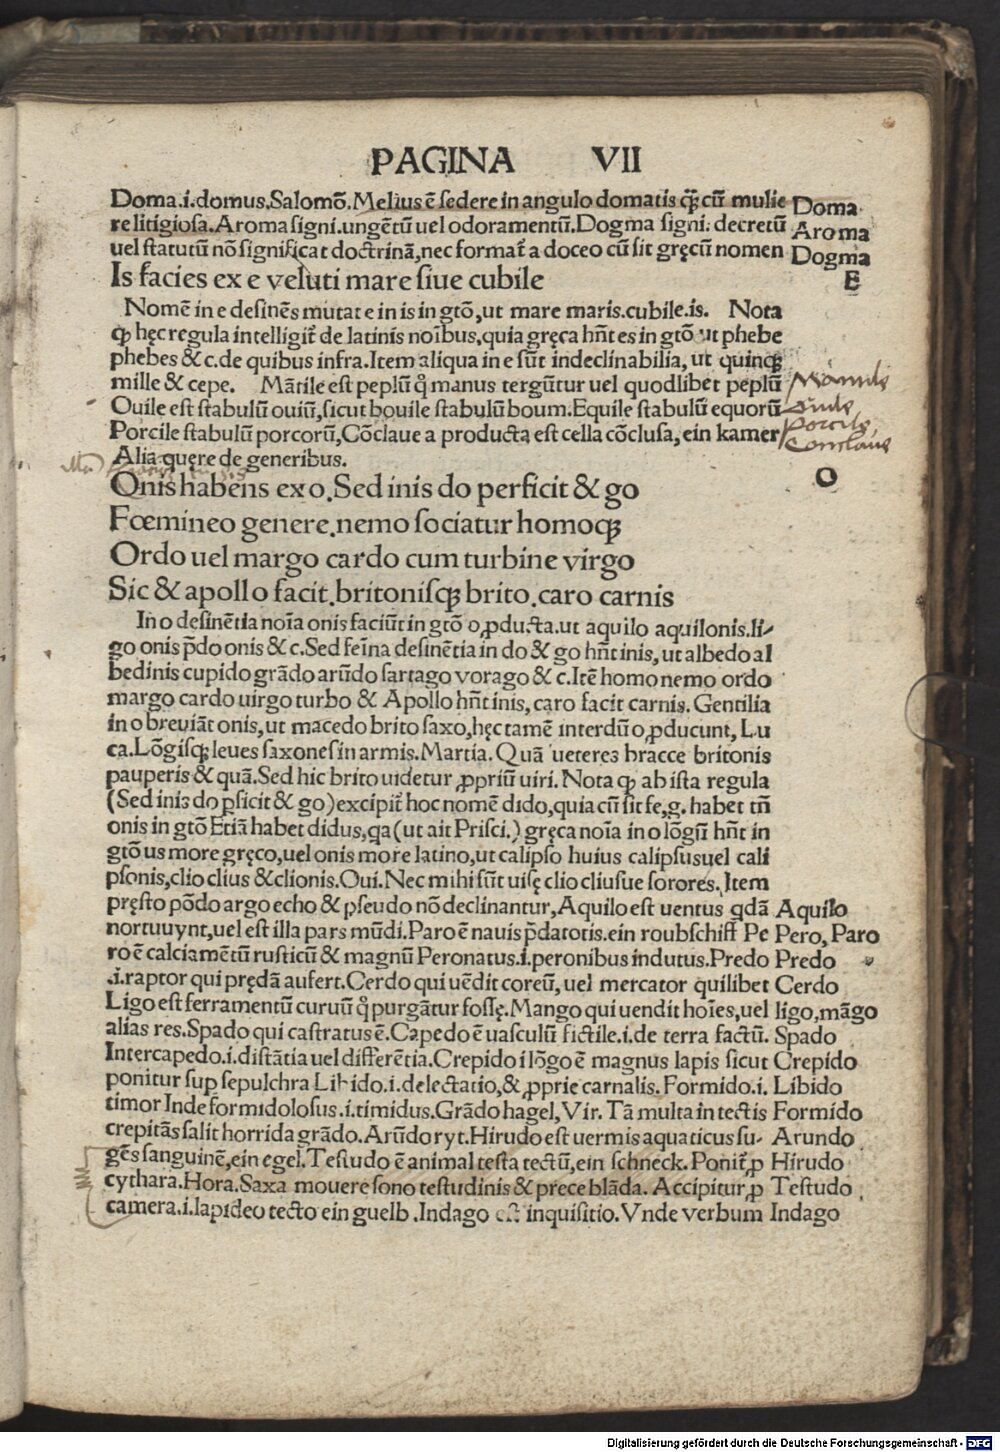 PAGINA VII
Doma.i.domus.Salomō.Melius ē sedere in angulo domatis q̃ꝫ cū mulie Doma
re litigiosa.Aroma signi.ungētū uel odoramentū.Dogma signi: decretū Aroma
uel statutū nō significat doctrinā,nec format̄ a doceo cū sit gręcū nomen Dogma
Is facies ex e veluti mare siue cubile E
Nomē in e desinēs mutat e in is in gtō,ut mare maris.cubile.is. Nota
ꝙ hęc regula intelligit̄ de latinis noībus,quia gręca hn̄t es in gtō ut phebe
phebes & c.de quibus infra.Item aliqua in e sūt indeclinabilia, ut quinqꝫ
mille & cepe. Mātile est peplū q̊ manus tergūtur uel quodlibet peplū Mantile
Ouile est stabulū ouiū,sicut bouile stabulū boum.Equile stabulū equorū Ouile
Porcile stabulū porcorū,Cōclaue a producta est cella cōclusa,ein kamer Porcile,
Conclaue
Alia quęre de generibus.
Onis habens ex o.Sed inis do perficit & go O
Fœmineo genere.nemo sociatur homoqꝫ
Ordo uel margo cardo cum turbine virgo
Sic & apollo facit.britonisqꝫ brito.caro carnis
In o desinētia noīa onis faciūt in gtō o ꝓducta.ut aquilo aquilonis.li-
go onis p̄do onis & c.Sed fēīna desinētia in do & go hn̄t inis, ut albedo al
bedinis cupido grādo arūdo sartago vorago & c.Itē homo nemo ordo
margo cardo uirgo turbo & Apollo hn̄t inis, caro facit carnis. Gentilia
in o breuiāt onis, ut macedo brito saxo,hęc tamē interdū o ꝓducunt, Lu
ca.Lōgisqꝫ leues saxones in armis.Martia. Quā ueteres bracce britonis
pauperis & quā.Sed hic brito uidetur ꝓpriū uiri. Nota ꝙ ab ista regula
(Sed inis do ꝑficit & go)excipit̄ hoc nomē dido,quia cū sit fe,g. habet tn̄
onis in gtō Etiā habet didus,qa(ut ait Prisci.) gręca noīa in o lōgū hn̄t in
gtō us more gręco,uel onis more latino,ut calipso huius calipsus uel cali
psonis,clio clius &clionis.Oui.Nec mihi sūt uisę clio cliusue sorores.Item
pręsto pōdo argo echo & pseudo nō declinantur,Aquilo est uentus qdā Aquilo
nortuuynt,uel est illa pars mūdi.Paro ē nauis p̄datoris.ein roubschiff Pe Pero, Paro
ro ē calciamētū rusticū & magnū Peronatus.i.peronibus indutus.Predo Predo
.i.raptor qui prędā aufert.Cerdo qui uēdit coreū, uel mercator quilibet Cerdo
Ligo est ferramentū curuū q̊ purgātur fossę.Mango qui uendit hoīes,uel ligo,māgo
alias res.Spado qui castratus ē.Capedo ē uasculū fictile.i.de terra factū. Spado
Intercapedo.i.distātia uel differētia.Crepido i lōgo ē magnus lapis sicut Crepido
ponitur sup sepulchra Libido.i.delectatio,& ꝓprie carnalis. Formido.i. Libido
timor Inde formidolosus.i.timidus.Grādo hagel, Vir. Tā multa in tectis Formido
crepitās salit horrida grādo. Arūdo ryt.Hirudo est uermis aquaticus su- Arundo
gēs sanguinē,ein egel.Testudo ē animal testa tectū,ein schneck. Ponit̄ ꝓ Hirudo
cythara.Hora.Saxa mouere sono testudinis & prece blāda. Accipitur ꝓ Testudo
camera.i.lapideo tecto ein guelb .Indago est inquisitio.Vnde verbum Indago
Digitalisierung gefördert durch die Deutsche Forschungsgemeinschaft - DFG